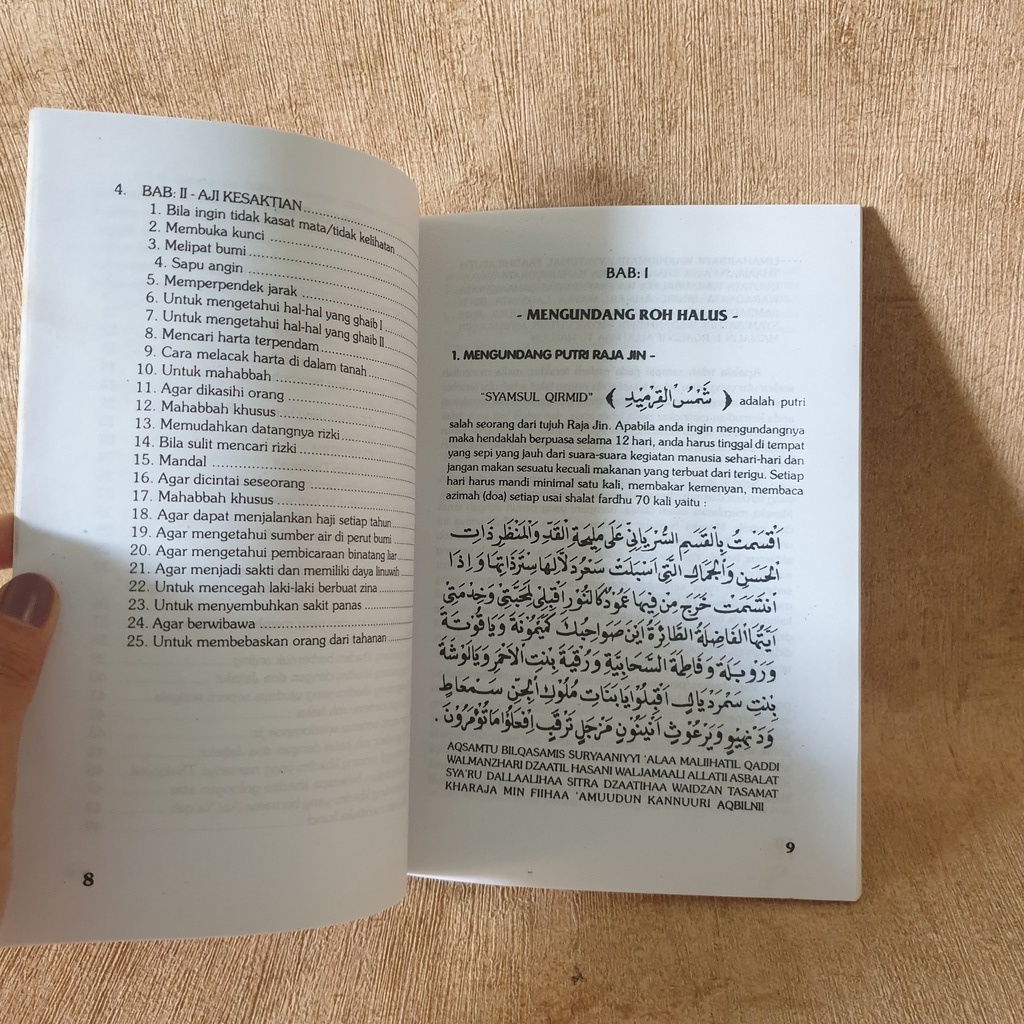 4. BAB: II - AJI KESAKTIAN
1. Bila ingin tidak kasat mata/tidak kelihatan
2. Membuka kunci
3. Melipat bumi
4. Sapu angin
5. Memperpendek jarak
6. Untuk mengetahui hal-hal yang ghaib I
7. Untuk mengetahui hal-hal yang ghaib II
8. Mencari harta terpendam
9. Cara melacak harta di dalam tanah
10. Untuk mahabbah
11. Agar dikasihi orang
12. Mahabbah khusus
13. Memudahkan datangnya rizki
14. Bila sulit mencari rizki
15. Mandal
16. Agar dicintai seseorang
17. Mahabbah khusus
18. Agar dapat menjalankan haji setiap tahun
19. Agar mengetahui sumber air di perut bumi
20. Agar mengetahui pembicaraan binatang liar
21. Agar menjadi sakti dan memiliki daya linuwih
22. Untuk mencegah laki-laki berbuat zina
23. Untuk menyembuhkan sakit panas
24. Agar berwibawa
25. Untuk membebaskan orang dari tahanan
8
BAB: I
- MENGUNDANG ROH HALUS -
1. MENGUNDANG PUTRI RAJA JIN -
"SYAMSUL QIRMID" ( شَمْسُ الْقِرْمِيْدِ ) adalah putri
salah seorang dari tujuh Raja Jin. Apabila anda ingin mengundangnya
maka hendaklah berpuasa selama 12 hari, anda harus tinggal di tempat
yang sepi yang jauh dari suara-suara kegiatan manusia sehari-hari dan
jangan makan sesuatu kecuali makanan yang terbuat dari terigu. Setiap
hari harus mandi minimal satu kali, membakar kemenyan, membaca
azimah (doa) setiap usai shalat fardhu 70 kali yaitu :
اَقْسَمْتُ بِالْقَسَمِ السُّرْيَانِيِّ عَلَى مَلِيْحَةِ الْقَدِّ وَالْمَنْظَرِ ذَاتِ
الْحُسَنِ وَالْجَمَالِ الَّتِيْ اَسْبَلَتْ سَعْرُ دَلَّالِهَا سِتْرَ ذَاتِهَا وَاِذَا
ابْتَسَمَتْ خَرَجَ مِنْ فِيْهَا عَمُوْدٌ كَالنُّوْرِ اَقْبِلِيْ لِمَحَبَّتِيْ وَخِدْمَتِيْ
اَيَّتُهَا الْفَاضِلَةُ الطَّائِرَةُ اَيْنَ صَوَاحِبُكِ كَمَيْمُوْنَةَ وَيَاقُوْتَةَ
وَرَوْبَلَةَ وَفَاطِمَةَ السَّحَابِيَّةِ وَرُقَيَّةَ بِنْتِ الْاَحْمَرِ وَيَالَوْشَةَ
بِنْتِ سَمَرْدَيَاكِ اَقْبِلُوْا يَابَنَاتِ مُلُوْكِ الْجِنِّ
اِفْعَلُوْا مَا تُؤْمَرُوْنَ .
AQSAMTU BILQASAMIS SURYAANIYYI 'ALAA MALIIHATIL QADDI
WALMANZHARI DZAATIL HASANI WALJAMAALI ALLATII ASBALAT
SYA'RU DALLAALIHAA SITRA DZAATIHAA WAIDZAN TASAMAT
KHARAJA MIN FIIHAA 'AMUUDUN KANNUURI AQBILNII
9